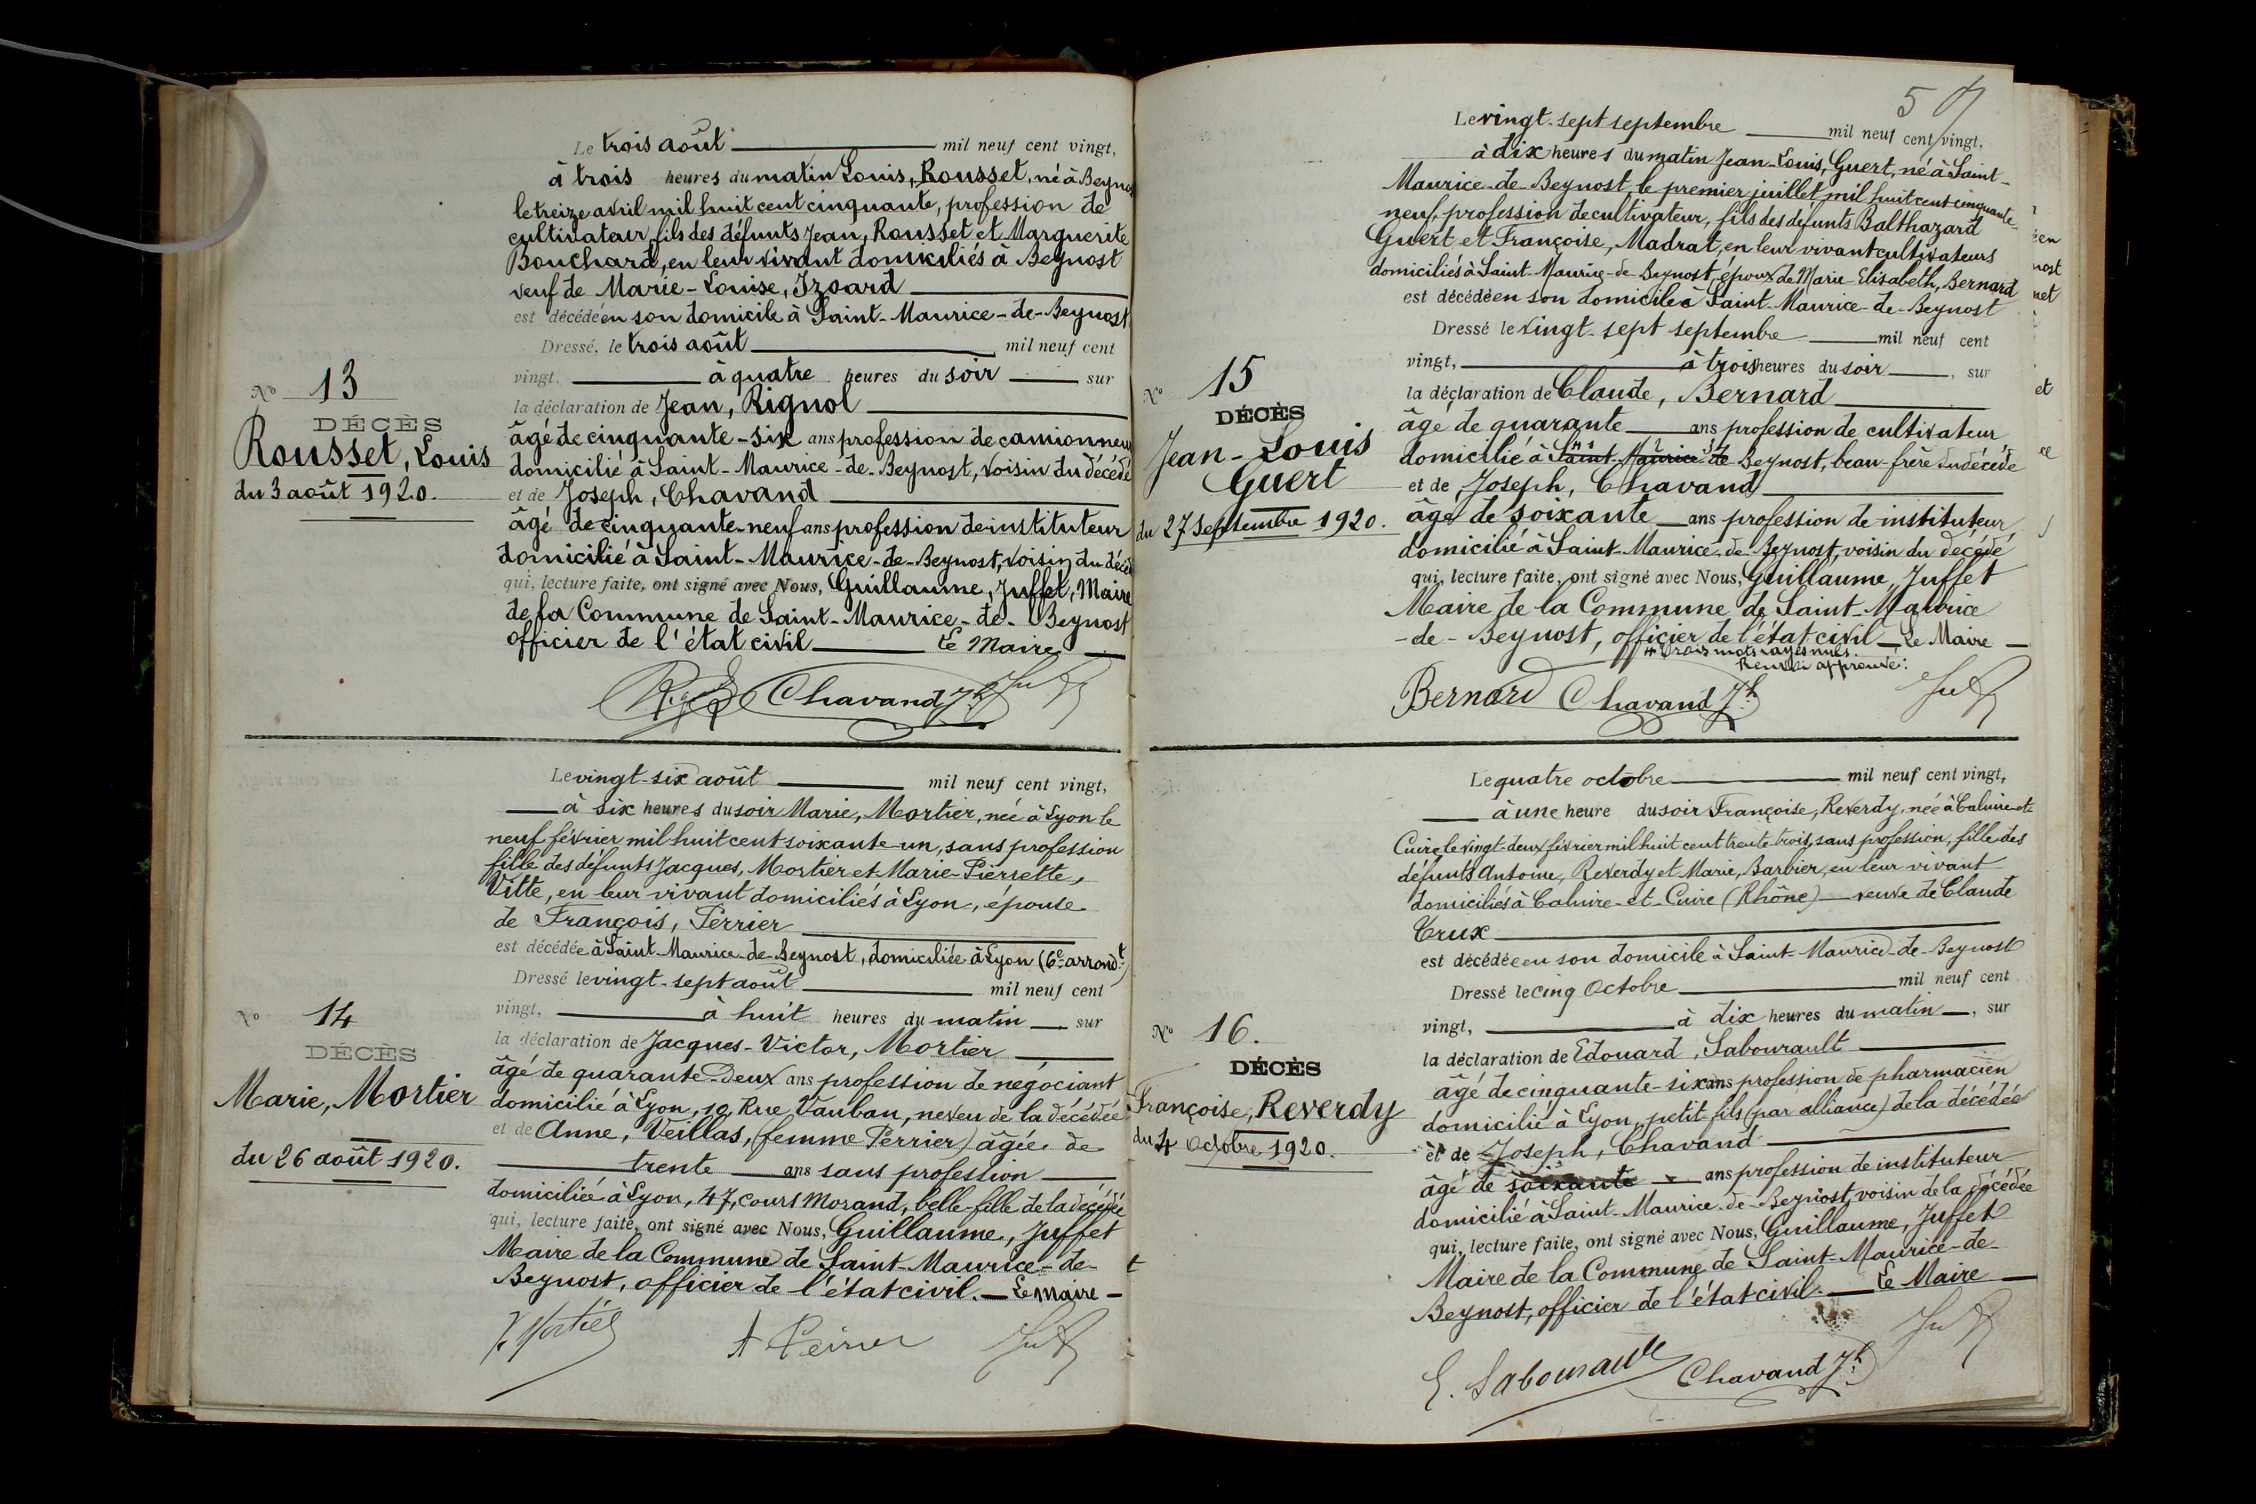 Le trois août mil neuf cent vingt,
à trois heures du matin Louis, Rousset, né à Beynost
le treize avril mil huit cent cinquante, profession de
cultivateur, fils des défunts Jean, Rousset et Marguerite
Bouchard, en leur vivant domiciliés à Beynost
veuf de Marie-Louise, Izoard
est décédé en son domicile à Saint-Maurice-de-Beynost
Dressé, le trois août mil neuf cent
vingt, à quatre heures du soir sur
la déclaration de Jean, Rignol
âgé de cinquante-six ans profession de camionneur
domicilié à Saint-Maurice-de-Beynost, voisin du décédé
et de Joseph, Chavand
âgé de cinquante-neuf ans profession de instituteur
domicilié à Saint-Maurice-de-Beynost, voisin du décédé
qui, lecture faite, ont signé avec Nous, Guillaume, Juffet, Maire
de la Commune de Saint-Maurice-de-Beynost
officier de l'état civil Le Maire
Chavand Jh
No 13
DÉCÈS
Rousset, Louis
du 3 août 1920.
Le vingt-six août mil neuf cent vingt,
à six heures du soir Marie, Mortier, née à Lyon le
neuf février mil huit cent soixante-un, sans profession
fille des défunts Jacques, Mortier et Marie-Pierrette,
Vitte, en leur vivant domiciliés à Lyon, épouse
de François, Perrier
est décédée à Saint-Maurice-de-Beynost, domiciliée à Lyon (6e arrondt)
Dressé le vingt-sept août mil neuf cent
vingt, à huit heures du matin sur
la déclaration de Jacques-Victor, Mortier
âgé de quarante-deux ans profession de négociant
domicilié à Lyon, 19, Rue Vauban, neveu de la décédée
et de Anne, Veillas, (femme Perrier) âgée de
trente ans sans profession
domiciliée à Lyon, 47, cours Morand, belle-fille de la décédée
qui, lecture faite, ont signé avec Nous, Guillaume, Juffet
Maire de la Commune de Saint-Maurice-de-
Beynost, officier de l'état civil. Le Maire
V. Mortier A Perrier
No 14
DÉCÈS
Marie, Mortier
du 26 août 1920.
5
Le vingt-sept septembre mil neuf cent vingt,
à dix heures du matin Jean-Louis, Guert, né à Saint-
Maurice-de-Beynost, le premier juillet mil huit cent cinquante-
neuf, profession de cultivateur, fils des défunts Balthazard
Guert et Françoise, Madrat, en leur vivant cultivateurs
domiciliés à Saint-Maurice-de-Beynost, époux de Marie-Elisabeth, Bernard
est décédé en son domicile à Saint-Maurice-de-Beynost
Dressé le vingt-sept septembre mil neuf cent
vingt, à trois heures du soir, sur
la déclaration de Claude, Bernard
âgé de quarante ans profession de cultivateur
domicilié à Saint-Maurice-de Beynost, beau-frère du décédé
et de Joseph, Chavand
âgé de soixante ans profession de instituteur
domicilié à Saint-Maurice-de-Beynost, voisin du décédé
qui, lecture faite, ont signé avec Nous, Guillaume, Juffet
Maire de la Commune de Saint-Maurice
-de-Beynost, officier de l'état civil Le Maire
trois mots rayés nuls.
Renvoi approuvé.
Bernard Chavand Jh
No 15
DÉCÈS
Jean-Louis
Guert
du 27 Septembre 1920.
Le quatre octobre mil neuf cent vingt,
à une heure du soir Françoise, Reverdy, née à Caluire-et-
Cuire le vingt-deux février mil huit cent trente trois, sans profession, fille des
défunts Antoine, Reverdy et Marie, Barbier, en leur vivant
domiciliés à Caluire-et-Cuire (Rhône) veuve de Claude
Crux
est décédée en son domicile à Saint-Maurice-de-Beynost
Dressé le cinq Octobre mil neuf cent
vingt, à dix heures du matin, sur
la déclaration de Edouard, Sabourault
âgé de cinquante-six ans profession de pharmacien
domicilié à Lyon, petit fils (par alliance) de la décédée
et de Joseph, Chavand
âgé de soixante ans profession de instituteur
domicilié à Saint-Maurice-de-Beynost, voisin de la décédée
qui, lecture faite, ont signé avec Nous, Guillaume, Juffet
Maire de la Commune de Saint-Maurice-de-
Beynost, officier de l'état civil. Le Maire
E. Sabourault Chavand Jh
No 16.
DÉCÈS
Françoise, Reverdy
du 4 Octobre 1920.